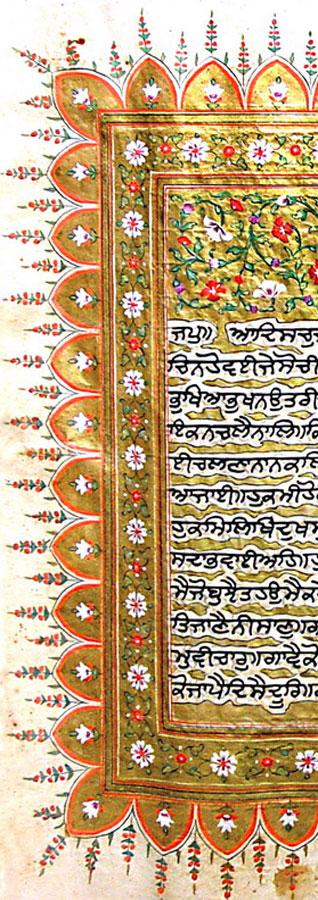 ਜਪੁ॥ ਆਦਿਸਚੁ
ਚਿਨਹੋਵਈਜੇਸੋਚੀ
ਭੁਖਿਆਭੁਖਨਉਤਰੀ
ਇਕਨਚਲੈਨਾਲਿ॥ਕਿ
ਈਚਲਣਾਨਾਨਕਲਿ
ਆਜਾਈ॥ਹੁਕਮੀਹੋ
ਹੁਕਮਿਲਿਖਿਦੁਖਸ
ਸਦਾਭਵਾਈਅਹਿ॥ਹੁ
ਮੈਜੇਬੁਝੈਤਹਉਮੈਕ
ਤਿਜਾਣੈਨੀਸਾਣੁ॥ਗ
ਮੁਵੀਚਾਰੁ॥ਗਾਵੈਕੋ
ਕੋਜਾਪੈਦਿਸੈਦੂਰਿ॥ਗ